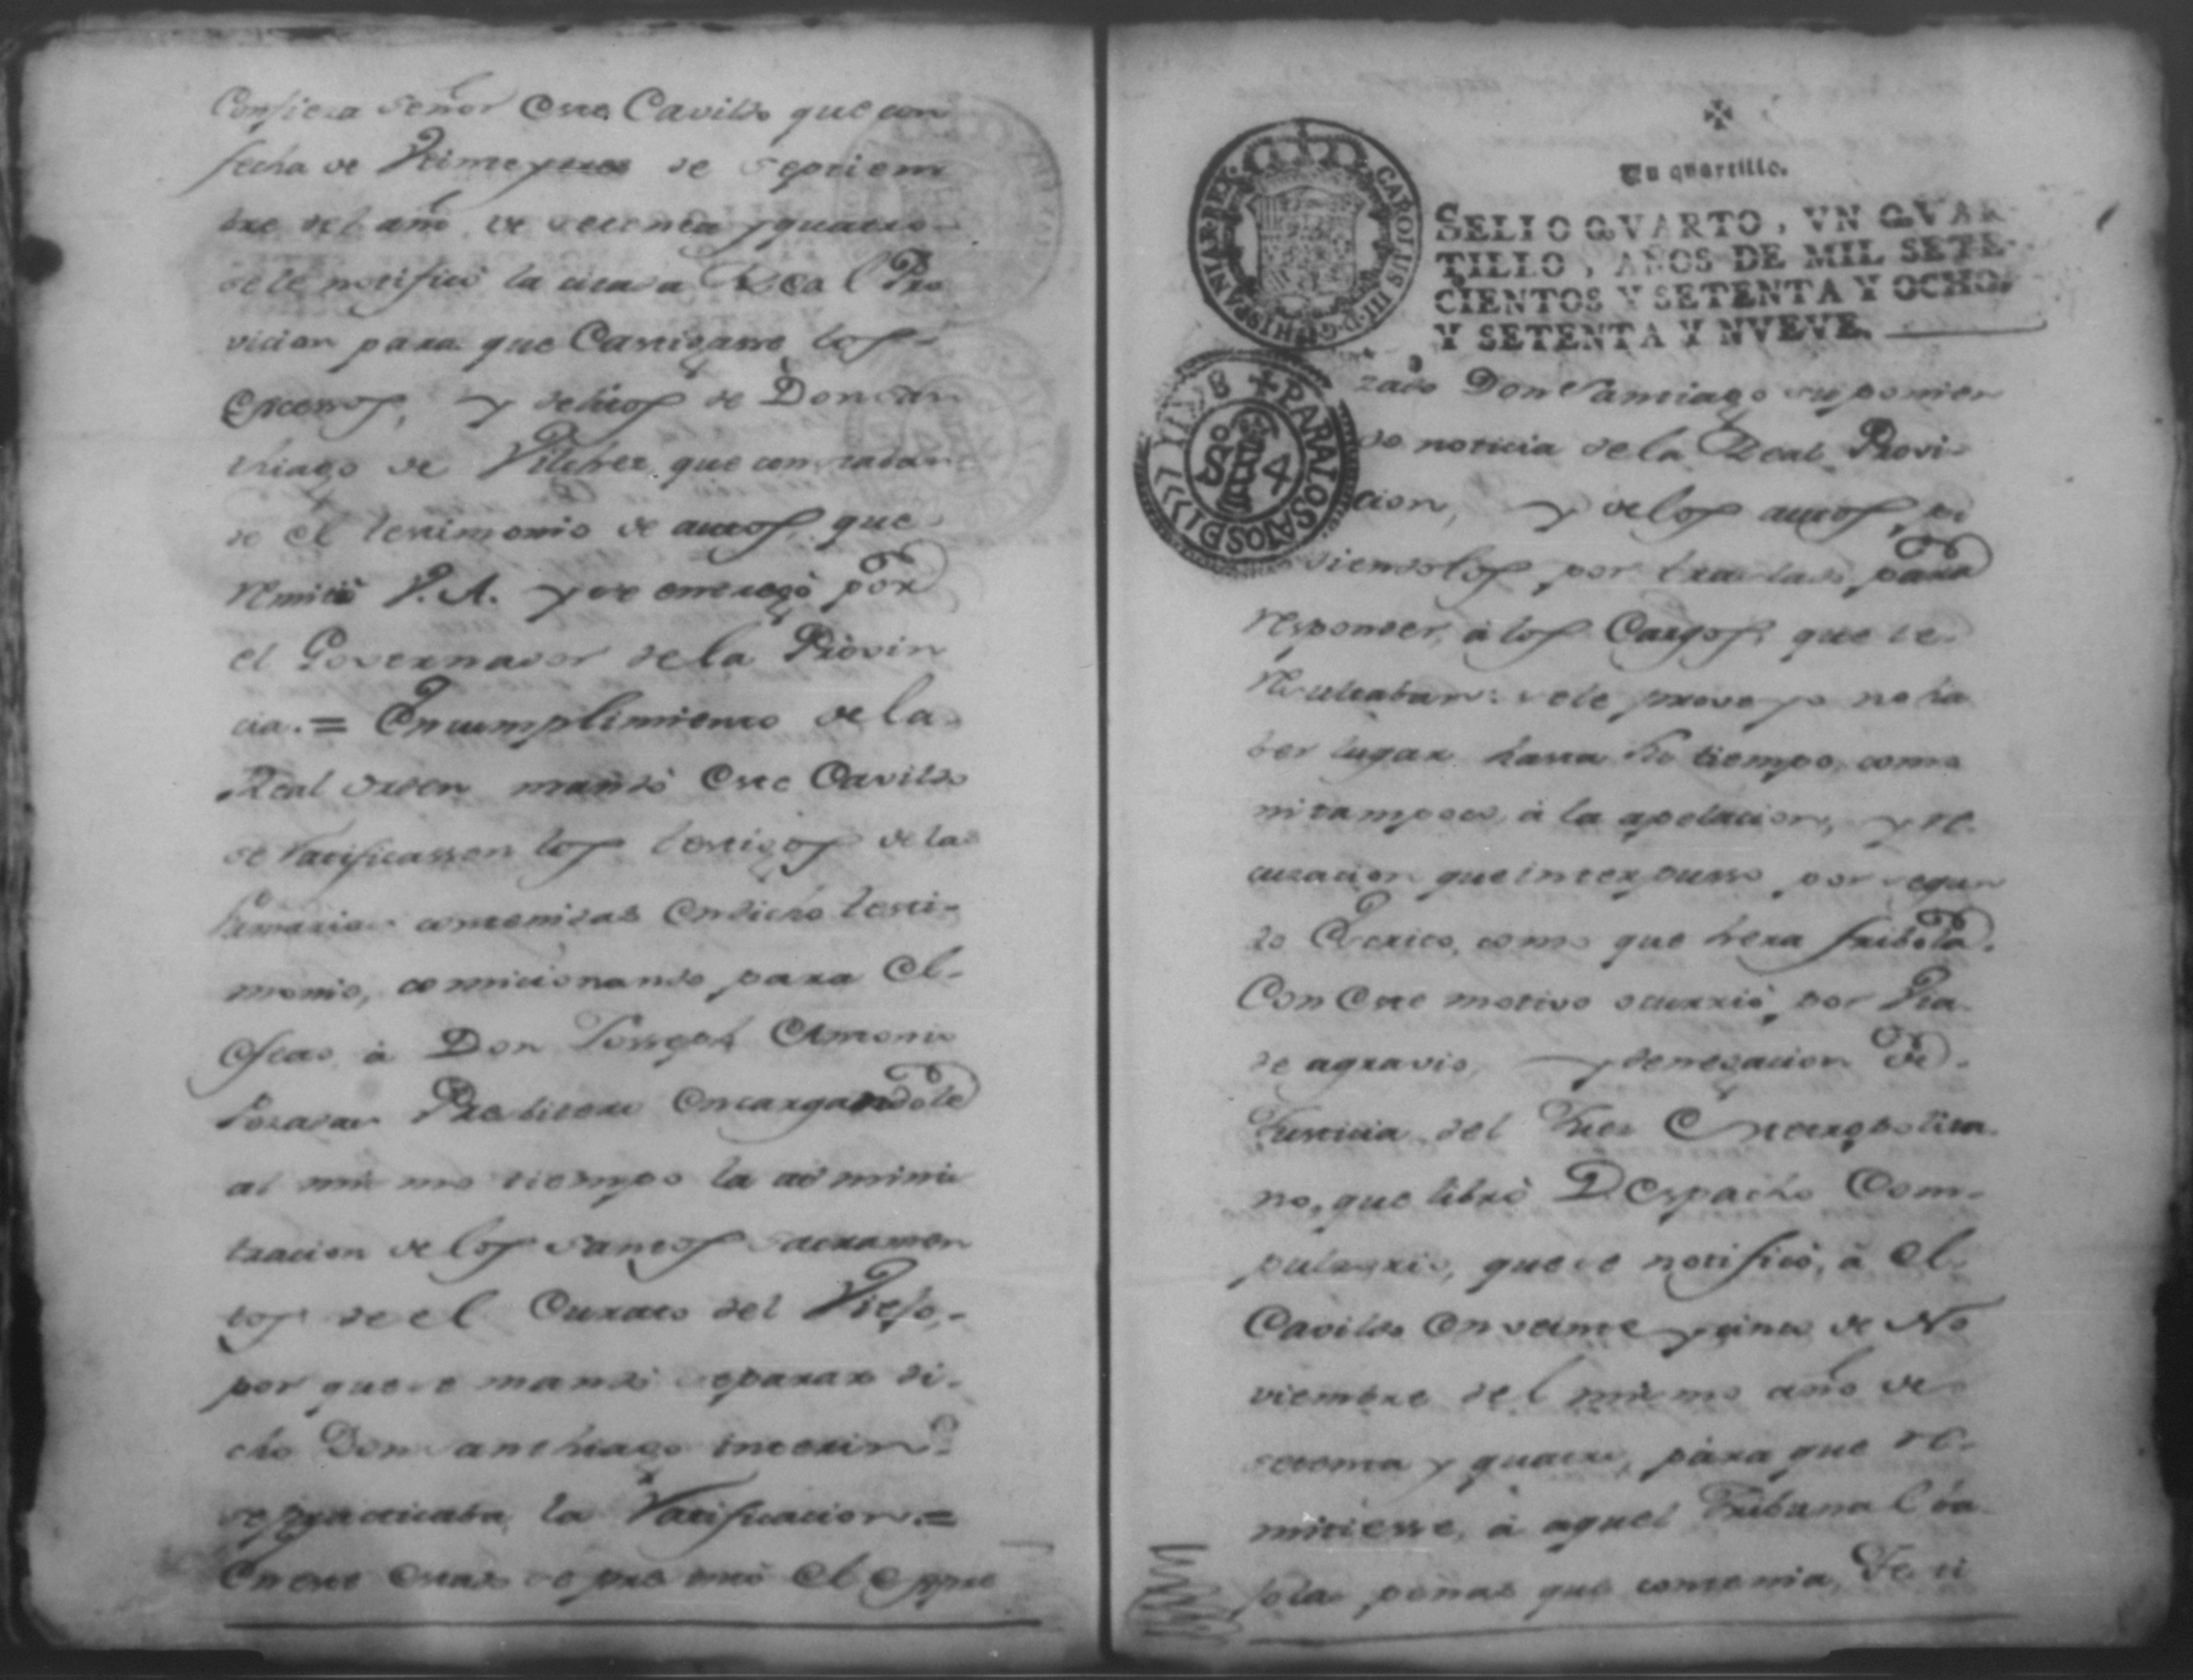 Confiesa Señor este Cavildo que con
fecha de Veinte y tres de Septiem
bre del año de setenta y quatro
se le notificó la citada Real Pro
vicion para que Castigasse los
excessos, y delitos de Don San
thiago de Vilches que constaban
de el testimonio de autos, que
remitió V.A. y se entregó por
el Governador de la Provin
cia. = En cumplimiento de la
Real orden mandó este Cavildo
se ratificassen los testigos de las
sumarias contenidas en dicho testi-
monio, comicionando para el
efecto à Don Josseph Antonio
Posadas Presbitero encargandole
al mismo tiempo la adminis
tracion de los santos sacramen
tos de el Curato del Viejo,
por que se mandó separar di-
cho Don Santhiago interin
se practicaba la ratificacion =
En este estado se presentó el expre
Un quartillo.
SELLO QVARTO, VN QVAR-
TILLO, AÑOS DE MIL SETE-
CIENTOS Y SETENTA Y OCHO,
Y SETENTA Y NVEVE.
CAROLUS III D G HISPANIAR REX
PARA LOS AÑOS D
zado Don Santiago suponien
do noticia de la Real Provi-
cion, y de los autos, pi
diendolos por traslado para
responder, à los Cargos, que le
resultaban: se le proveyo no ha
ber lugar hasta su tiempo, como
ni tampoco, à la apelacion, y re-
cusacion que interpusso por segun
do Escrito, como que hera fribola.
Con este motivo ocurrió por Via
de agravio, y denegacion de
Justicia del Juez Metropolita
no, que libró Despacho Com-
pulsorio, que se notificó, à el
Cavildo en veinte y cinco de No
viembre del mismo año de
setenta y quatro, para que re-
mitiesse, à aquel Tribunal ba
jo las penas que contenia,